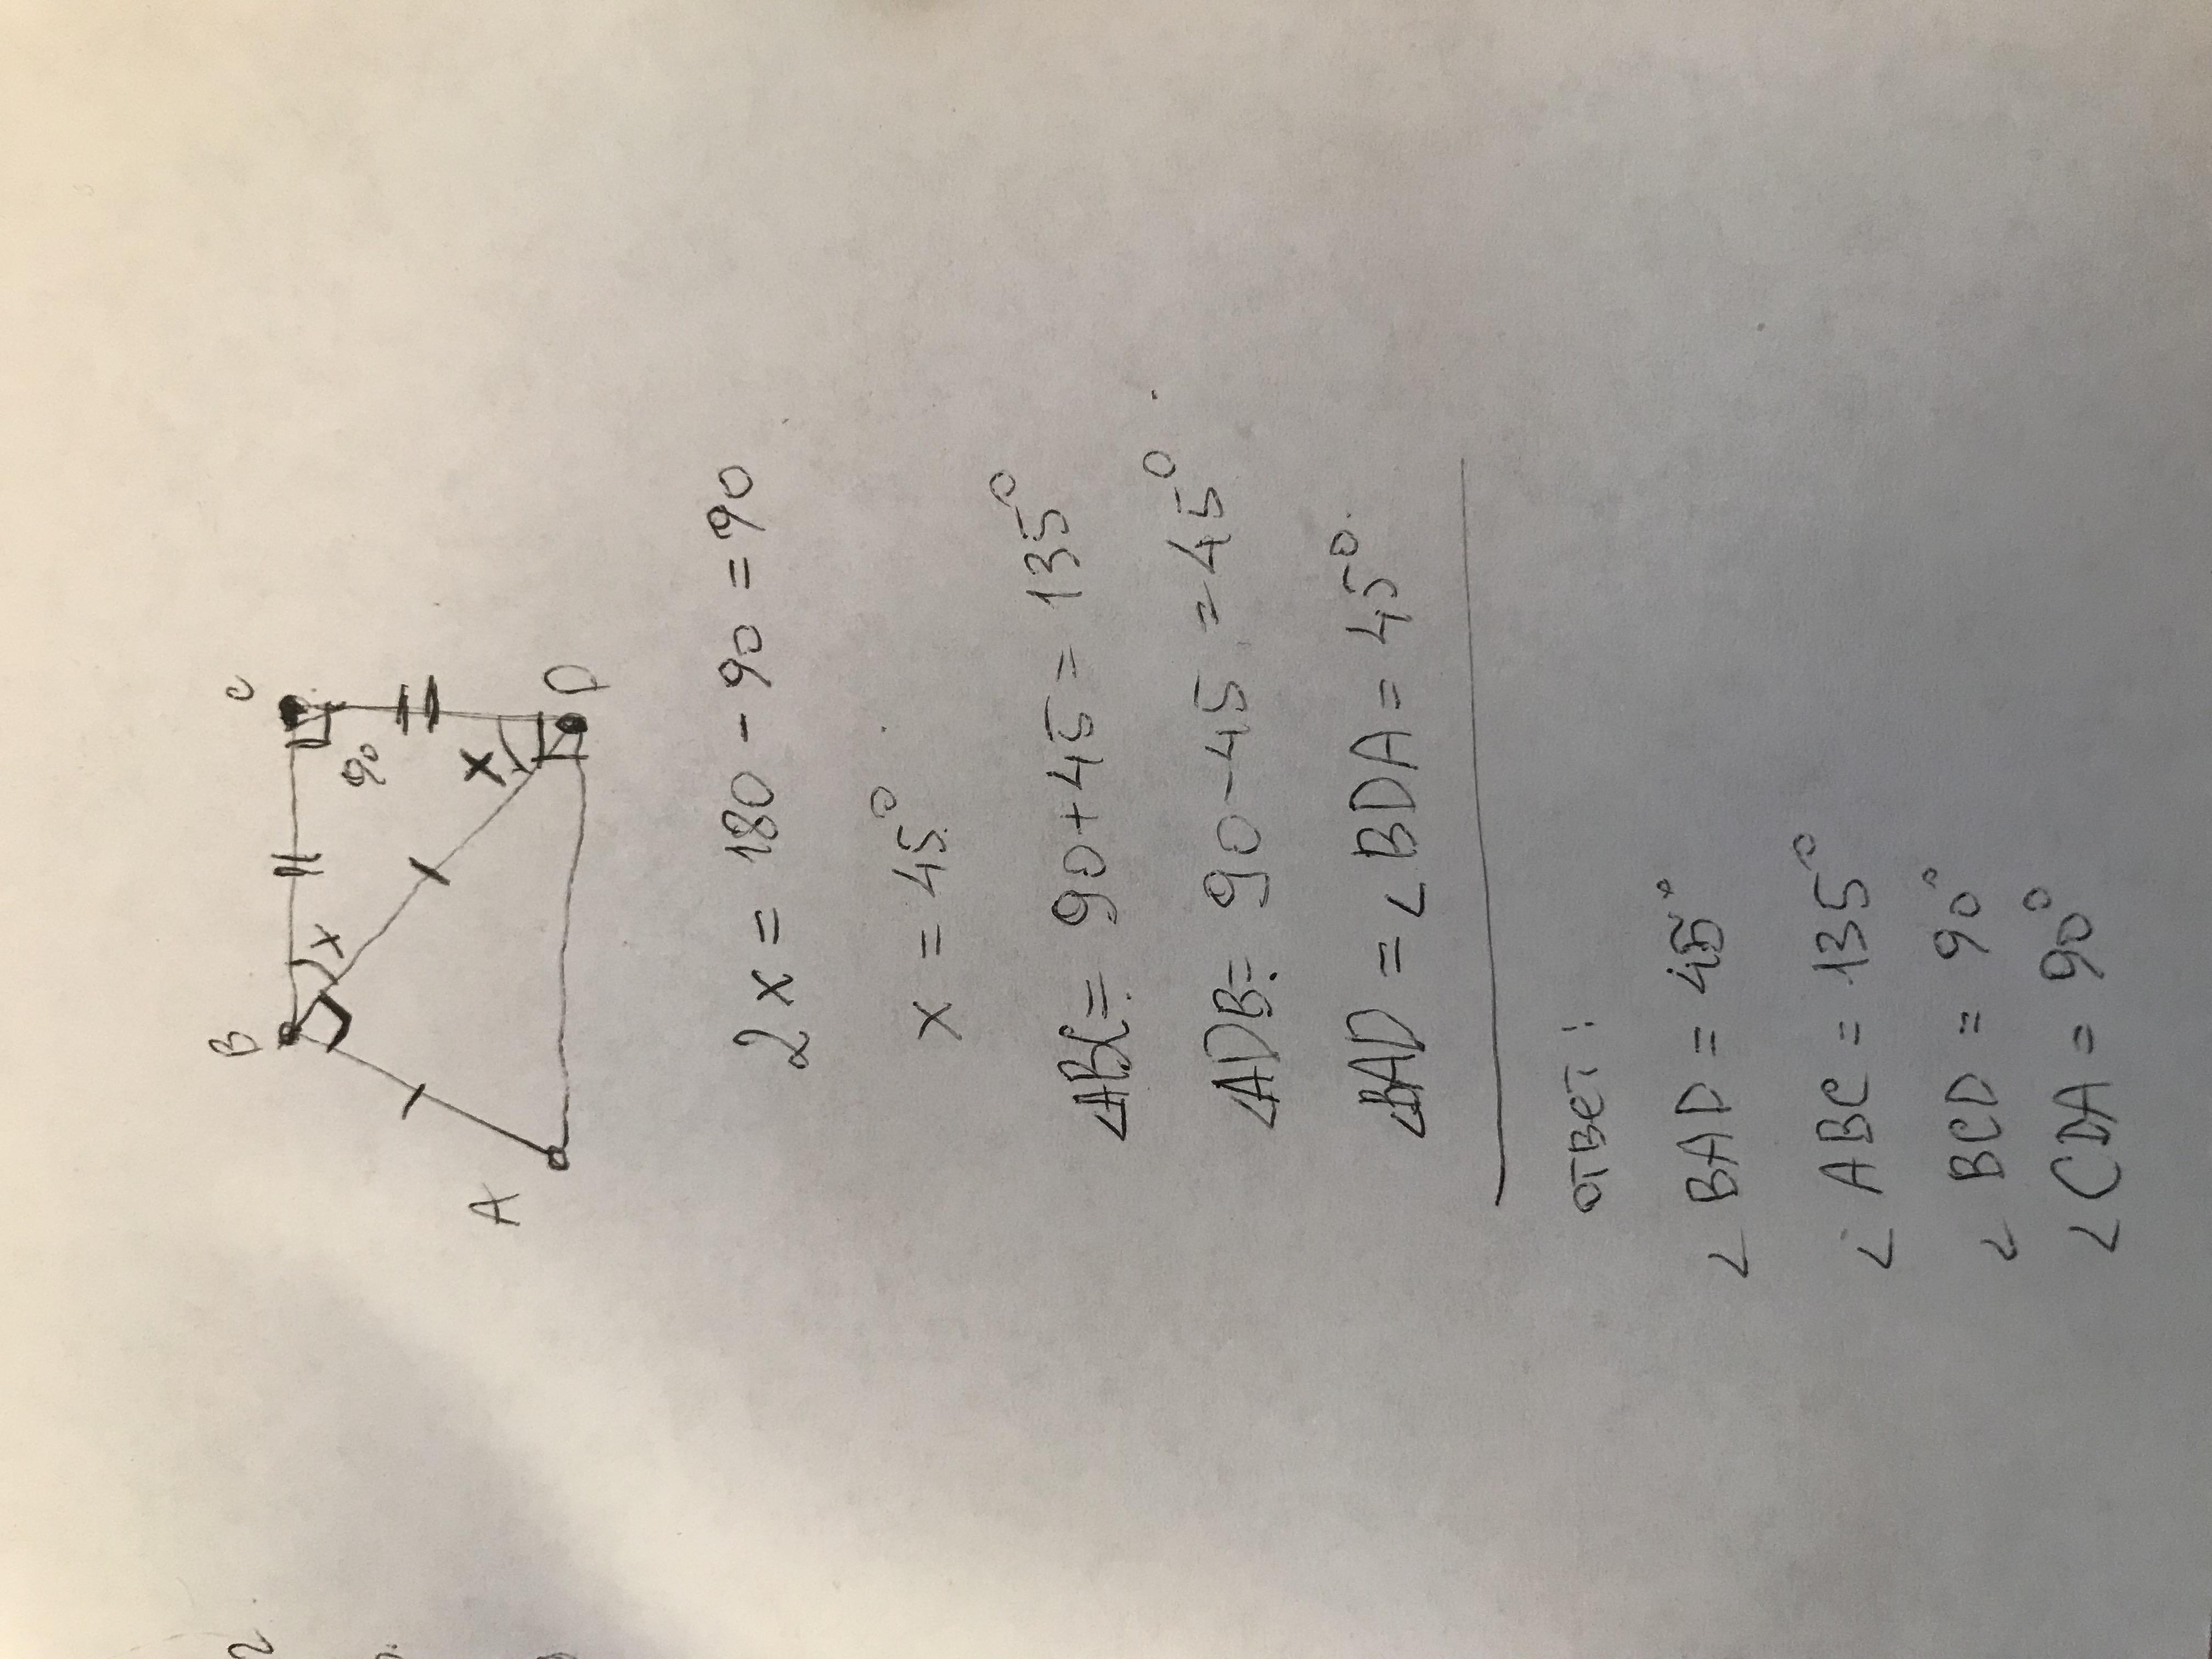 B
C
90
x
x
A
D
2x = 180 - 90 = 90
x = 45°
∠ABC = 90 + 45 = 135°
∠ADB = 90 - 45 = 45°
∠BAD = ∠BDA = 45°.
ответ:
∠ BAD = 45°
∠ ABC = 135°
∠ BCD = 90°
∠ CDA = 90°